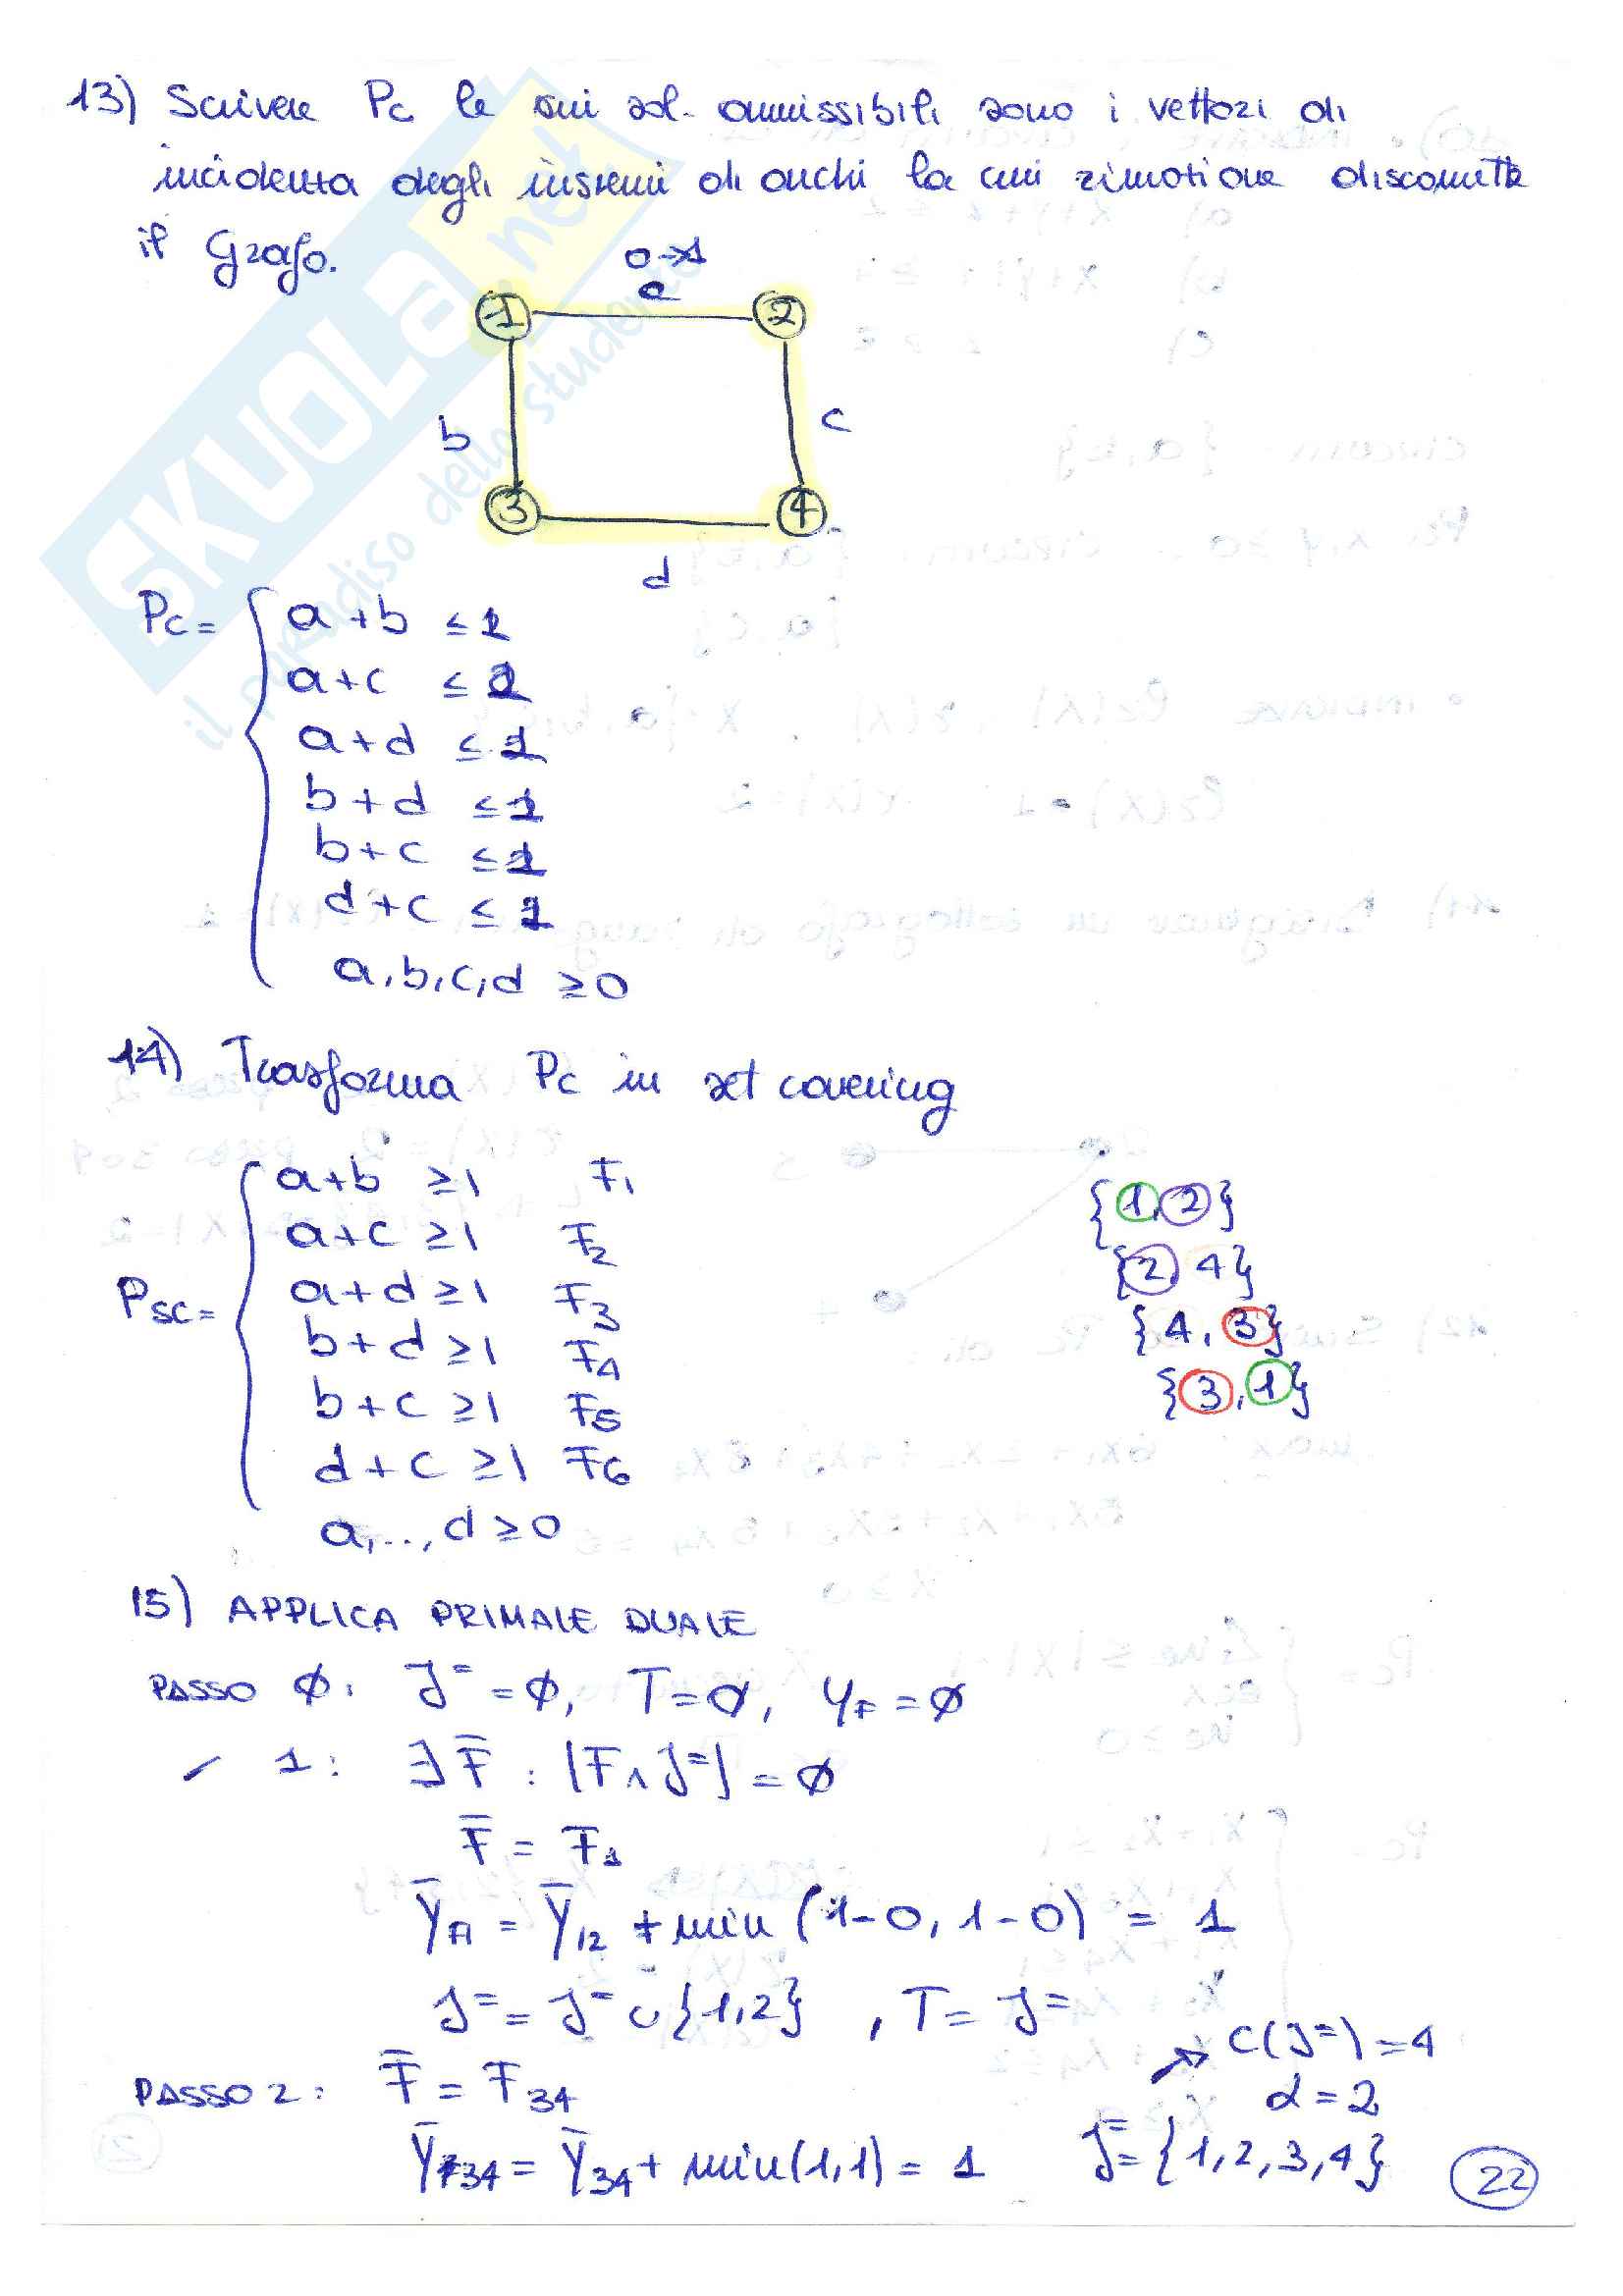 13) Scrivere Pc le cui sol. ammissibili sono i vettori di
incidenza degli insiemi di archi la cui rimozione disconnette
il Grafo.
0→1
a
1 2
b c
3 4
d
Pc = { a + b ≤ 1
a + c ≤ 1
a + d ≤ 1
b + d ≤ 1
b + c ≤ 1
d + c ≤ 1
a, b, c, d ≥ 0
14) Trasforma Pc in set covering
Psc = { a + b ≥ 1 F1
a + c ≥ 1 F2
a + d ≥ 1 F3
b + d ≥ 1 F4
b + c ≥ 1 F5
d + c ≥ 1 F6
a, .., d ≥ 0
{1, 2}
{2, 4}
{4, 3}
{3, 1}
15) APPLICA PRIMALE DUALE
PASSO Ø: J= = Ø, T = Ø, YF = Ø
1: ∃ F̅ : |F ∧ J=| = Ø
F̅ = F1
Y̅F1 = Y̅12 + min (1-0, 1-0) = 1
J= = J= ∪ {1,2} , T = J=
PASSO 2: F̅ = F34
C(J=) = 4
α = 2
Y̅F34 = Y̅34 + min(1,1) = 1 J= = {1,2,3,4}
22
SKUOLA.net
il paradiso dello studente